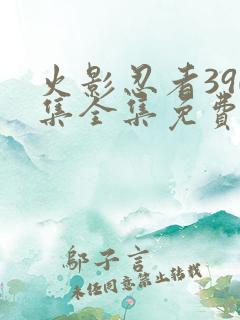 火影忍者39
集全集免费
邬子言
未经同意禁止转载